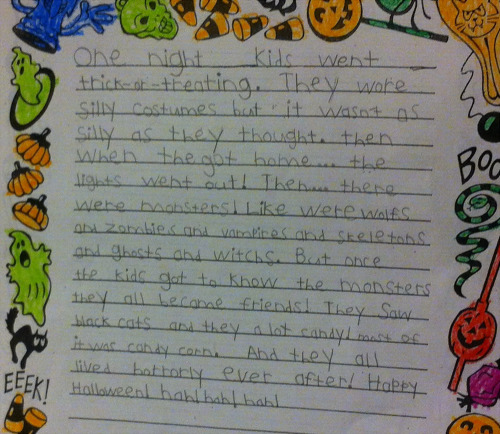 One night kids went
trick-or-treating. They wore
silly costumes but it wasnt as
silly as they thought. then
when the got home.... the
lights went out! Then.... there
were monsters! Like werewolfs
and zombies and vampires and skeletons
and ghosts and witchs. But once
the kids got to know the monsters
they all become friends! They saw
black cats and they a lot candy! most of
it was candy corn. And they all
lived horrorly ever after! Happy
Halloween! hah! hah! hah!
BOO
EEEK!